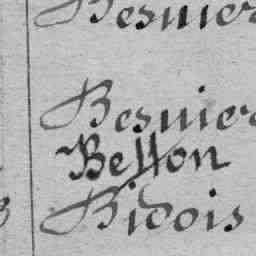 Besnier
Besnier
Betton
Bidois